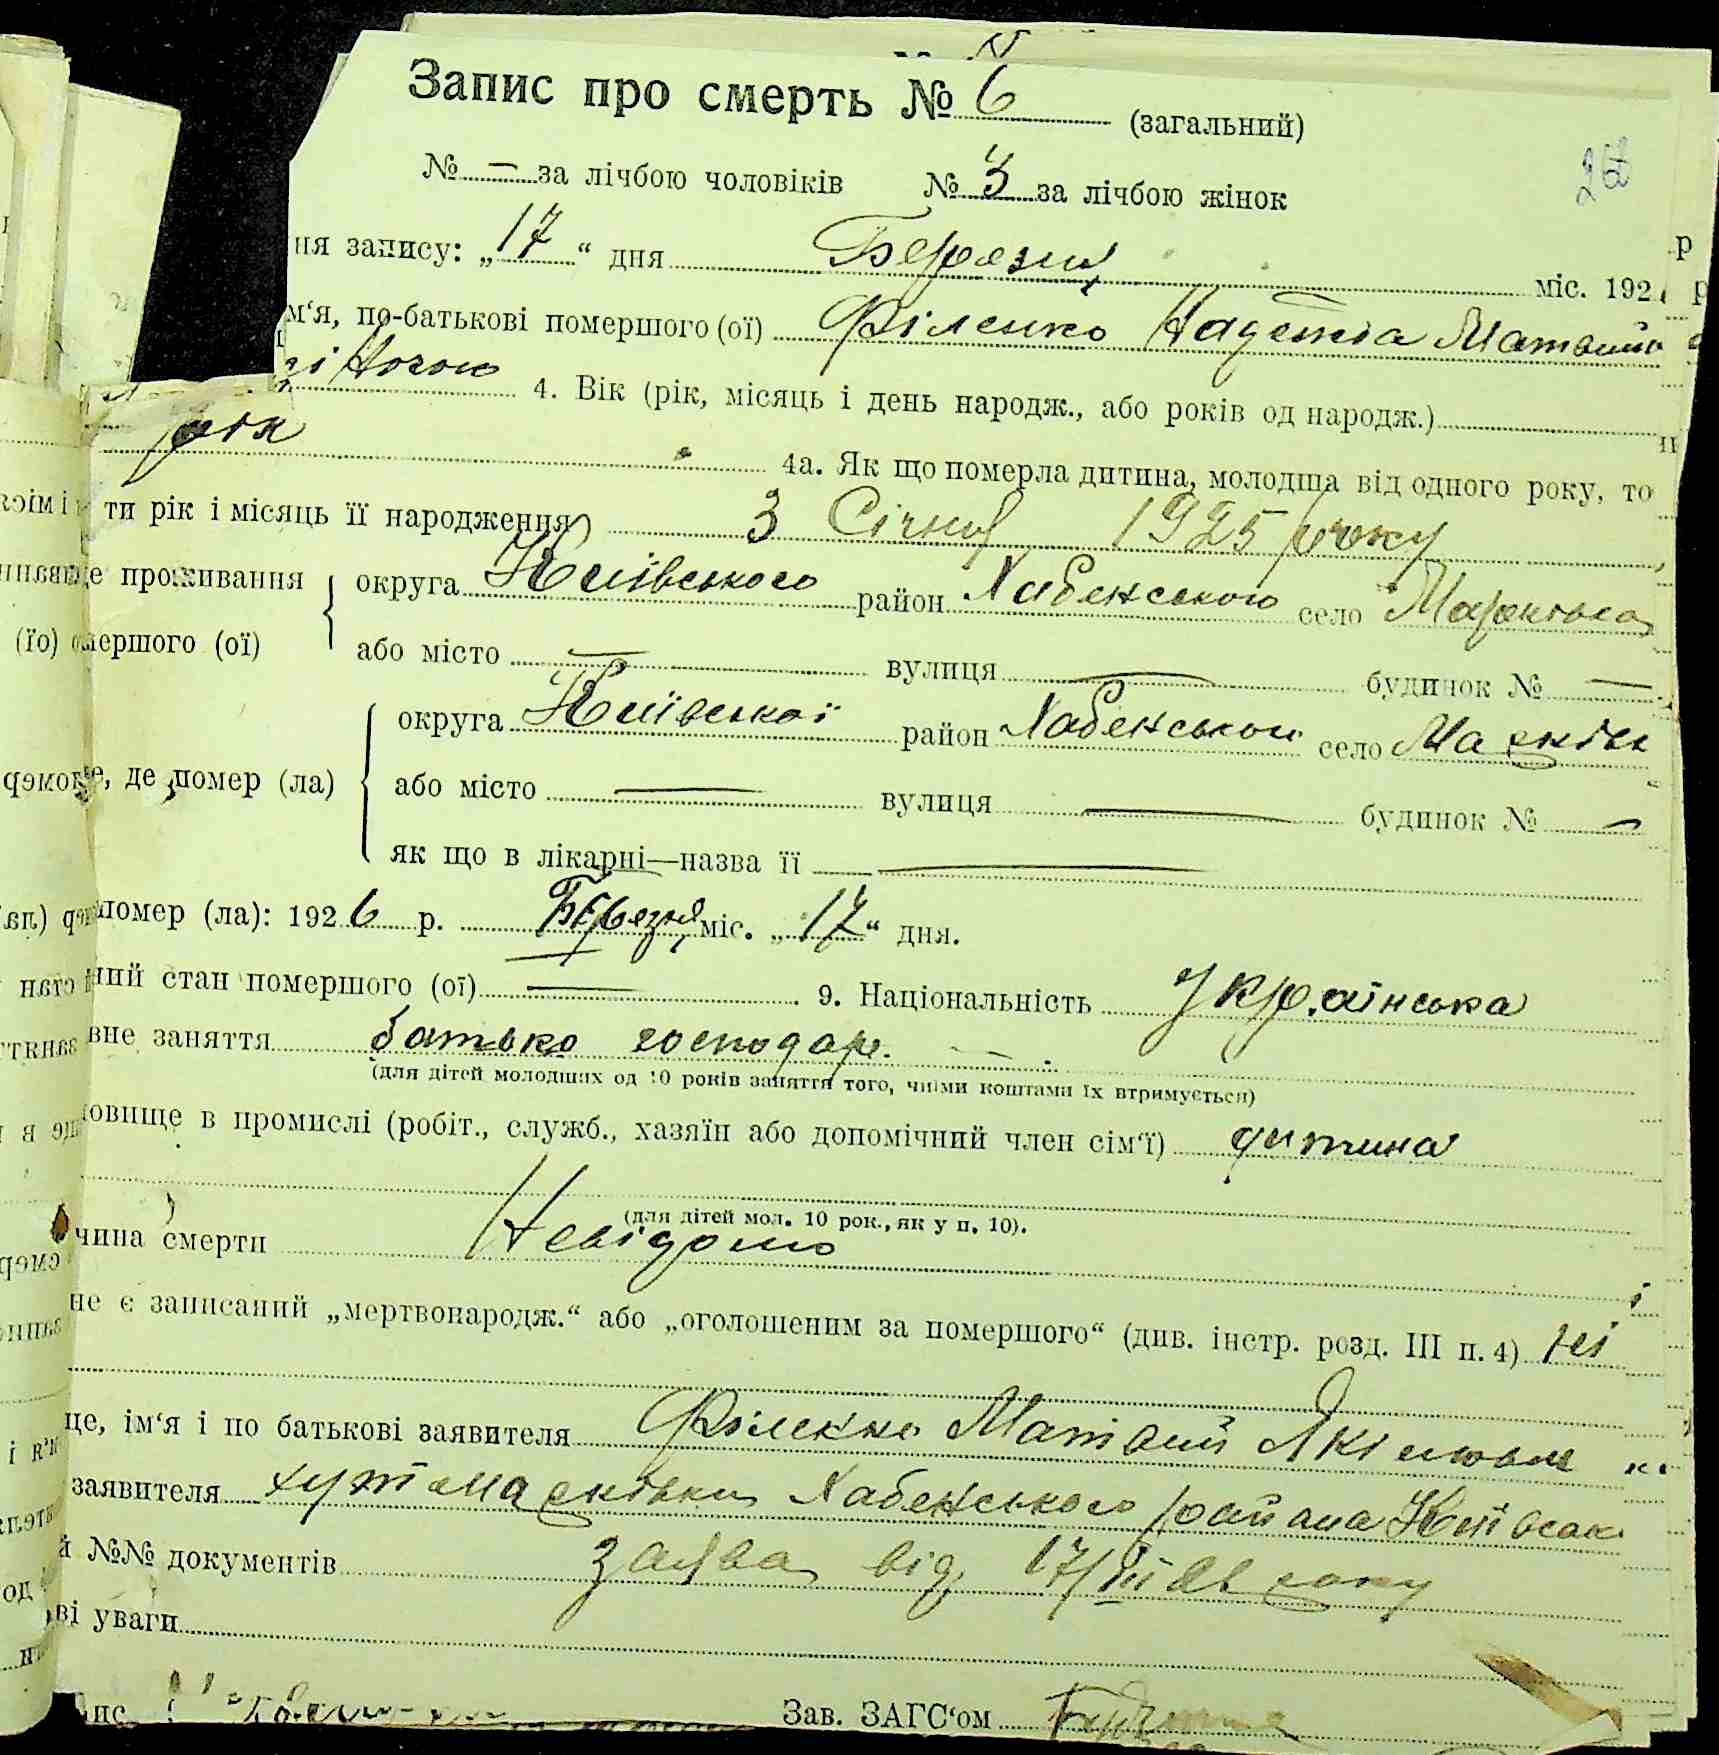 Запис про смерть № 6 (загальний)
№ — за лічбою чоловіків № 3 за лічбою жінок
262
ня запису: „17“ дня Березня міс. 192
м‘я, по-батькові помершого (ої) Філенко Надетіа Матвий
жіночої 4. Вік (рік, місяць і день народж., або років од народж.)
рік
4а. Як що померла дитина, молодша від одного року, то
ти рік і місяць її народження 3 Січня 1925 року
ще проживання округа Київського район Хабенського село Марківка
мершого (ої) або місто — вулиця — будинок № —
округа Київської район Хабенського село Марків
е, де помер (ла) або місто — вулиця — будинок № —
як що в лікарні—назва її —
помер (ла): 1926 р. Березня міс. „17“ дня.
ний стан помершого (ої) — 9. Національність Українська
вне заняття батько господар.
(для дітей молодших од 10 років заняття того, чиїми коштами їх втримується)
овище в промислі (робіт., служб., хазяїн або допомічний член сім‘ї) дитина
(для дітей мол. 10 рок., як у п. 10).
чина смерти Невідомо
не є записаний „мертвонародж.“ або „оголошеним за помершого“ (див. інстр. розд. III п. 4) ні
це, ім‘я і по батькові заявителя Філенко Матвий Якімович
заявителя хут Марківка Хабенського района Київськ
й №№ документів Заява від 17/III 26 року
ві уваги
пис
Зав. ЗАГС‘ом